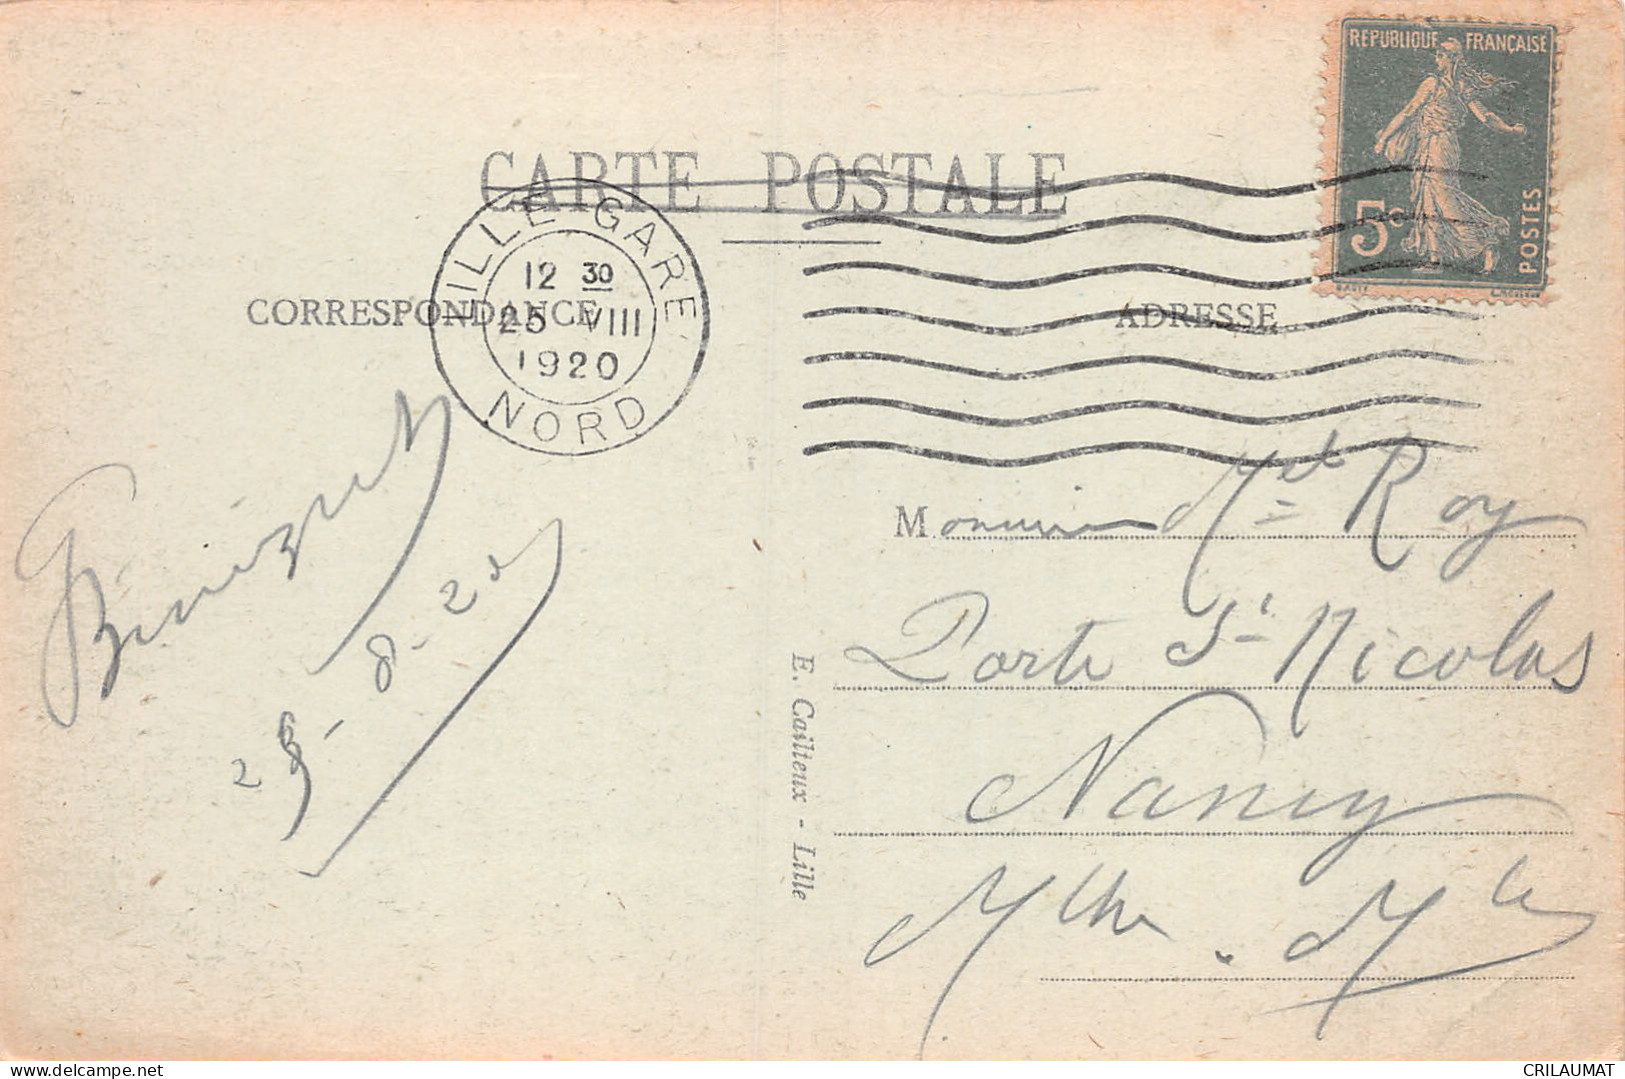 REPUBLIQUE FRANÇAISE
5c
POSTES
CARTE POSTALE
LILLE GARE
12 30
25 VIII
1920
NORD
CORRESPONDANCE
ADRESSE
25-8-20
Monsieur Roy
Porte St Nicolas
Nancy
Mthe - Mlle
E. Cailteux - Lille
CRILAUMAT